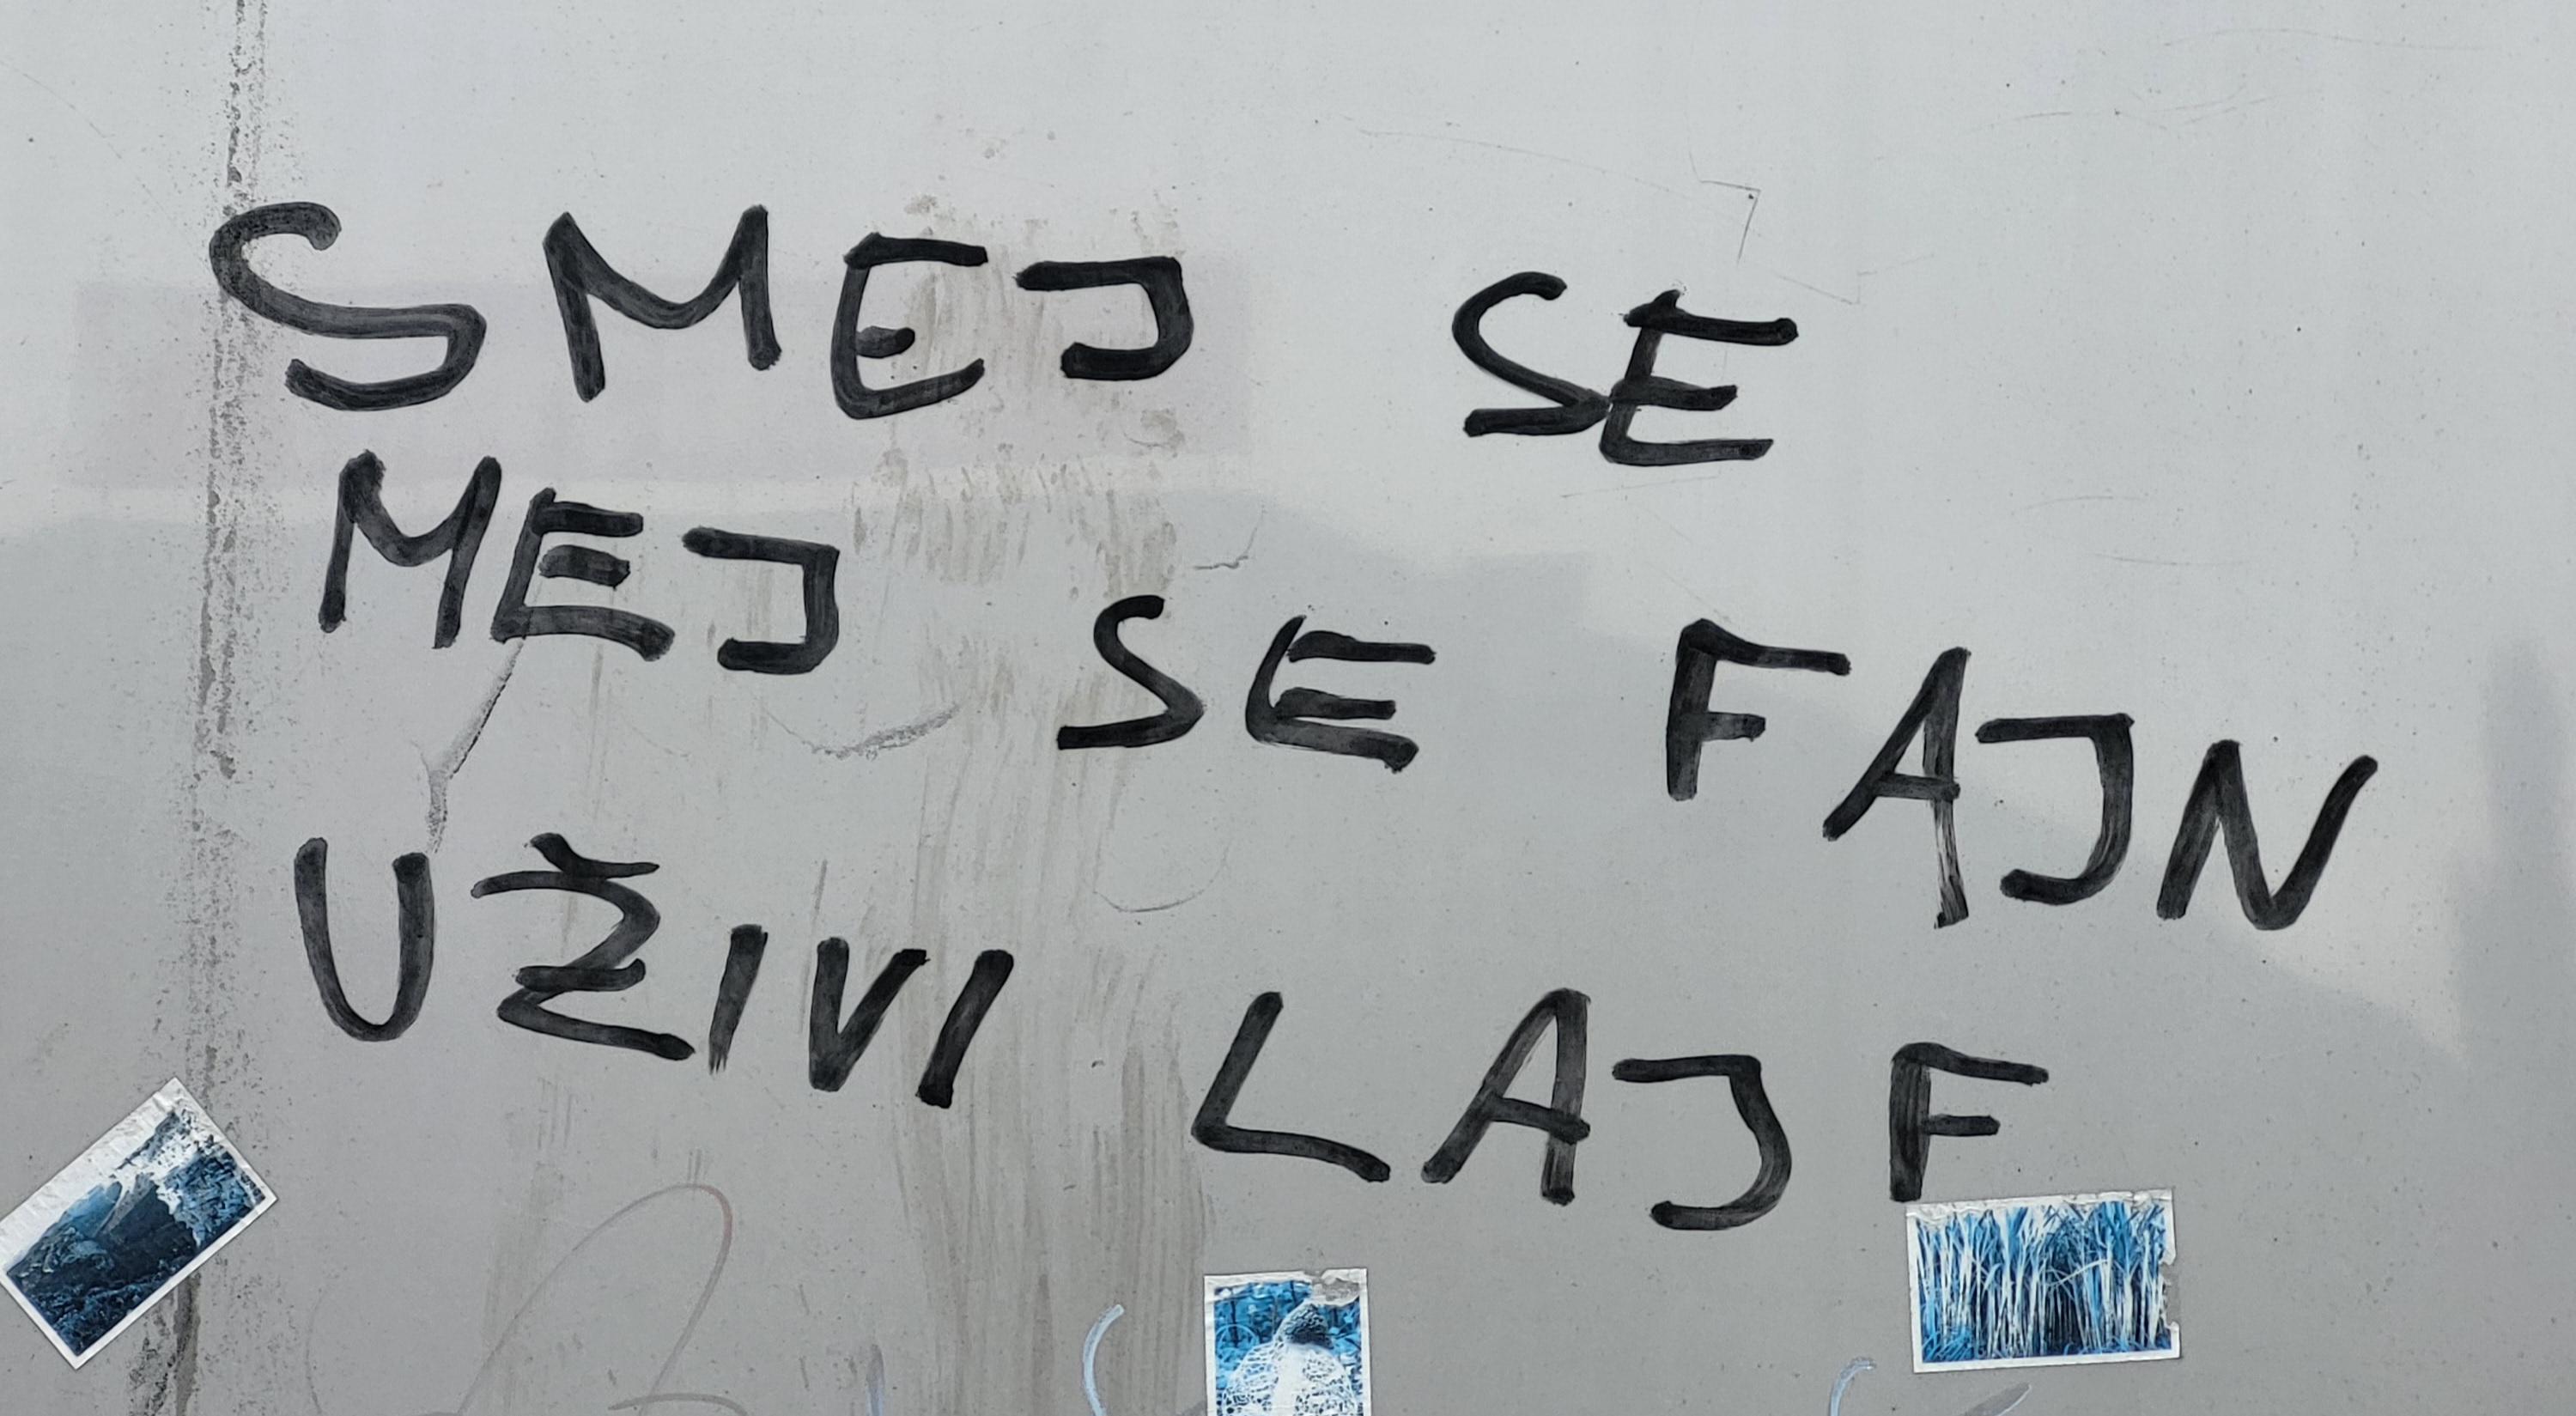 SMEJ SE
MEJ SE FAJN
UŽIVI LAJF